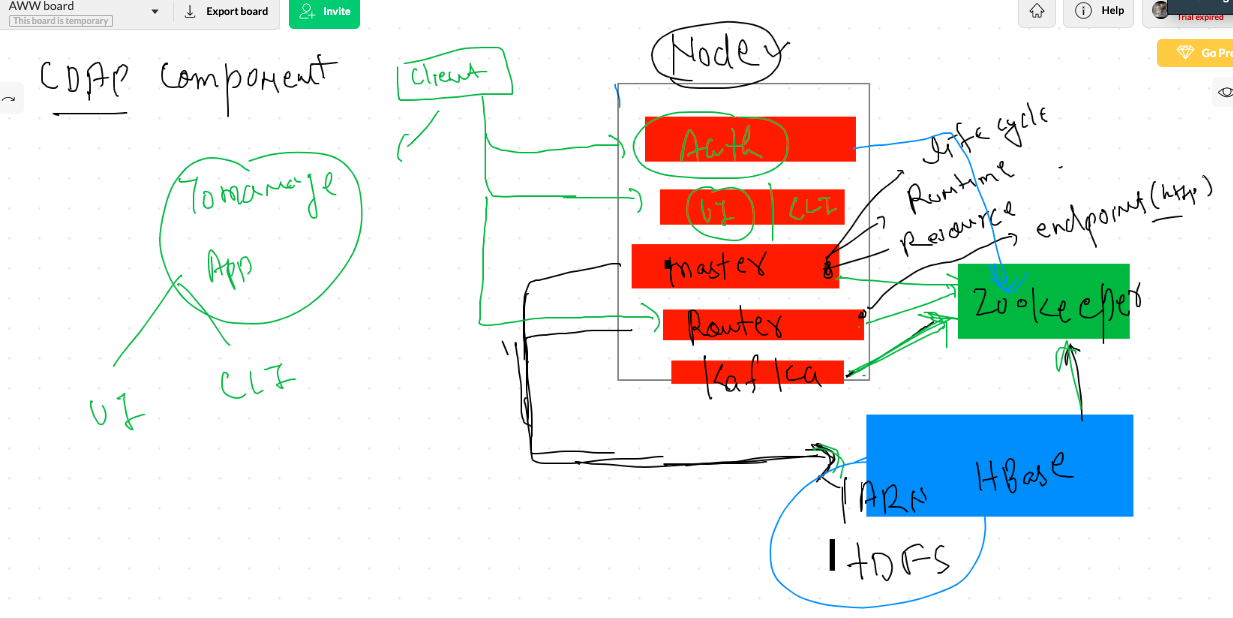 AWW board
This board is temporary
Export board
Invite
Help
Trial expired
Go Pre
CDAP Component
Client
Node
To manage
App
UI
CLI
Auth
UI | CLI
master
Router
Kafka
life cycle
Runtime
Resource
endpoint (http)
Zookeeper
HBase
YARN
HDFS